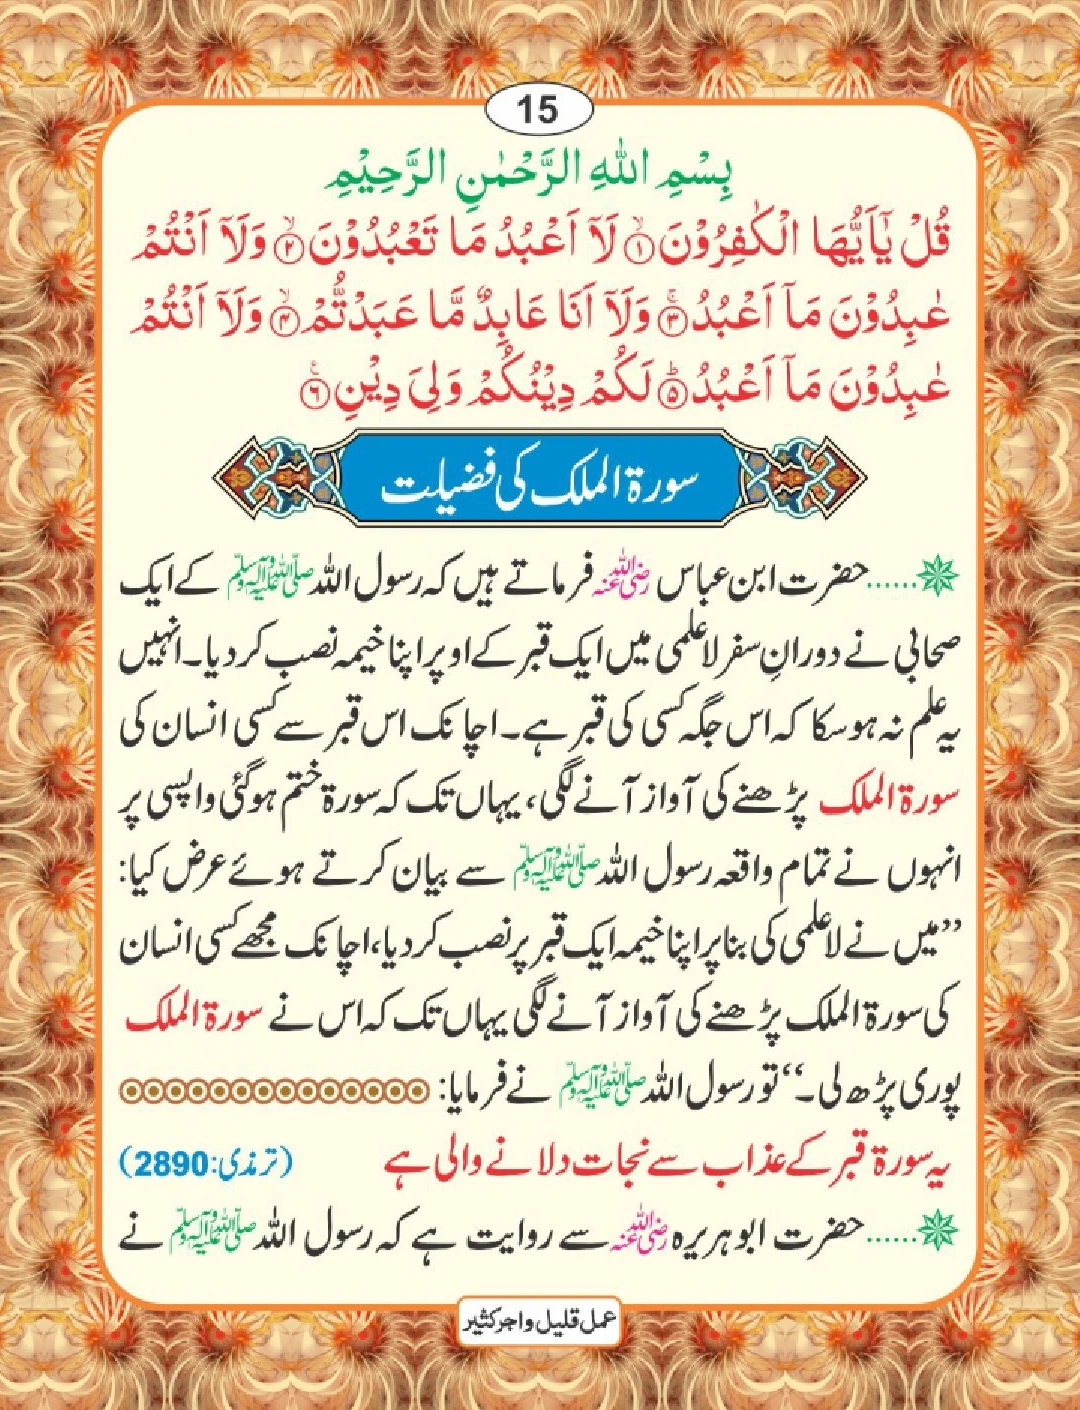 15
بِسْمِ اللهِ الرَّحْمٰنِ الرَّحِيْمِ
قُلْ يٰٓاَيُّهَا الْكٰفِرُوْنَ ۙ﴿۱﴾ لَآ اَعْبُدُ مَا تَعْبُدُوْنَ ۙ﴿۲﴾ وَلَآ اَنْتُمْ
عٰبِدُوْنَ مَآ اَعْبُدُ ۚ﴿۳﴾ وَلَآ اَنَا عَابِدٌ مَّا عَبَدْتُّمْ ۙ﴿۴﴾ وَلَآ اَنْتُمْ
عٰبِدُوْنَ مَآ اَعْبُدُ ؕ﴿۵﴾ لَكُمْ دِيْنُكُمْ وَلِيَ دِيْنِ ۠﴿۶﴾
سورۃ الملک کی فضیلت
......حضرت ابن عباس رضی اللہ عنہ فرماتے ہیں کہ رسول اللہ صلی اللہ علیہ وآلہ وسلم کے ایک
صحابی نے دورانِ سفر لاعلمی میں ایک قبر کے اوپر اپنا خیمہ نصب کر دیا۔ انہیں
یہ علم نہ ہو سکا کہ اس جگہ کسی کی قبر ہے۔ اچانک اس قبر سے کسی انسان کی
سورۃ الملک پڑھنے کی آواز آنے لگی، یہاں تک کہ سورۃ ختم ہو گئی واپسی پر
انہوں نے تمام واقعہ رسول اللہ صلی اللہ علیہ وآلہ وسلم سے بیان کرتے ہوئے عرض کیا:
”میں نے لاعلمی کی بنا پر اپنا خیمہ ایک قبر پر نصب کر دیا، اچانک مجھے کسی انسان
کی سورۃ الملک پڑھنے کی آواز آنے لگی یہاں تک کہ اس نے سورۃ الملک
پوری پڑھ لی۔“ تو رسول اللہ صلی اللہ علیہ وآلہ وسلم نے فرمایا:
یہ سورۃ قبر کے عذاب سے نجات دلانے والی ہے (ترمذی:2890)
......حضرت ابو ہریرہ رضی اللہ عنہ سے روایت ہے کہ رسول اللہ صلی اللہ علیہ وآلہ وسلم نے
عمل قلیل و اجر کثیر